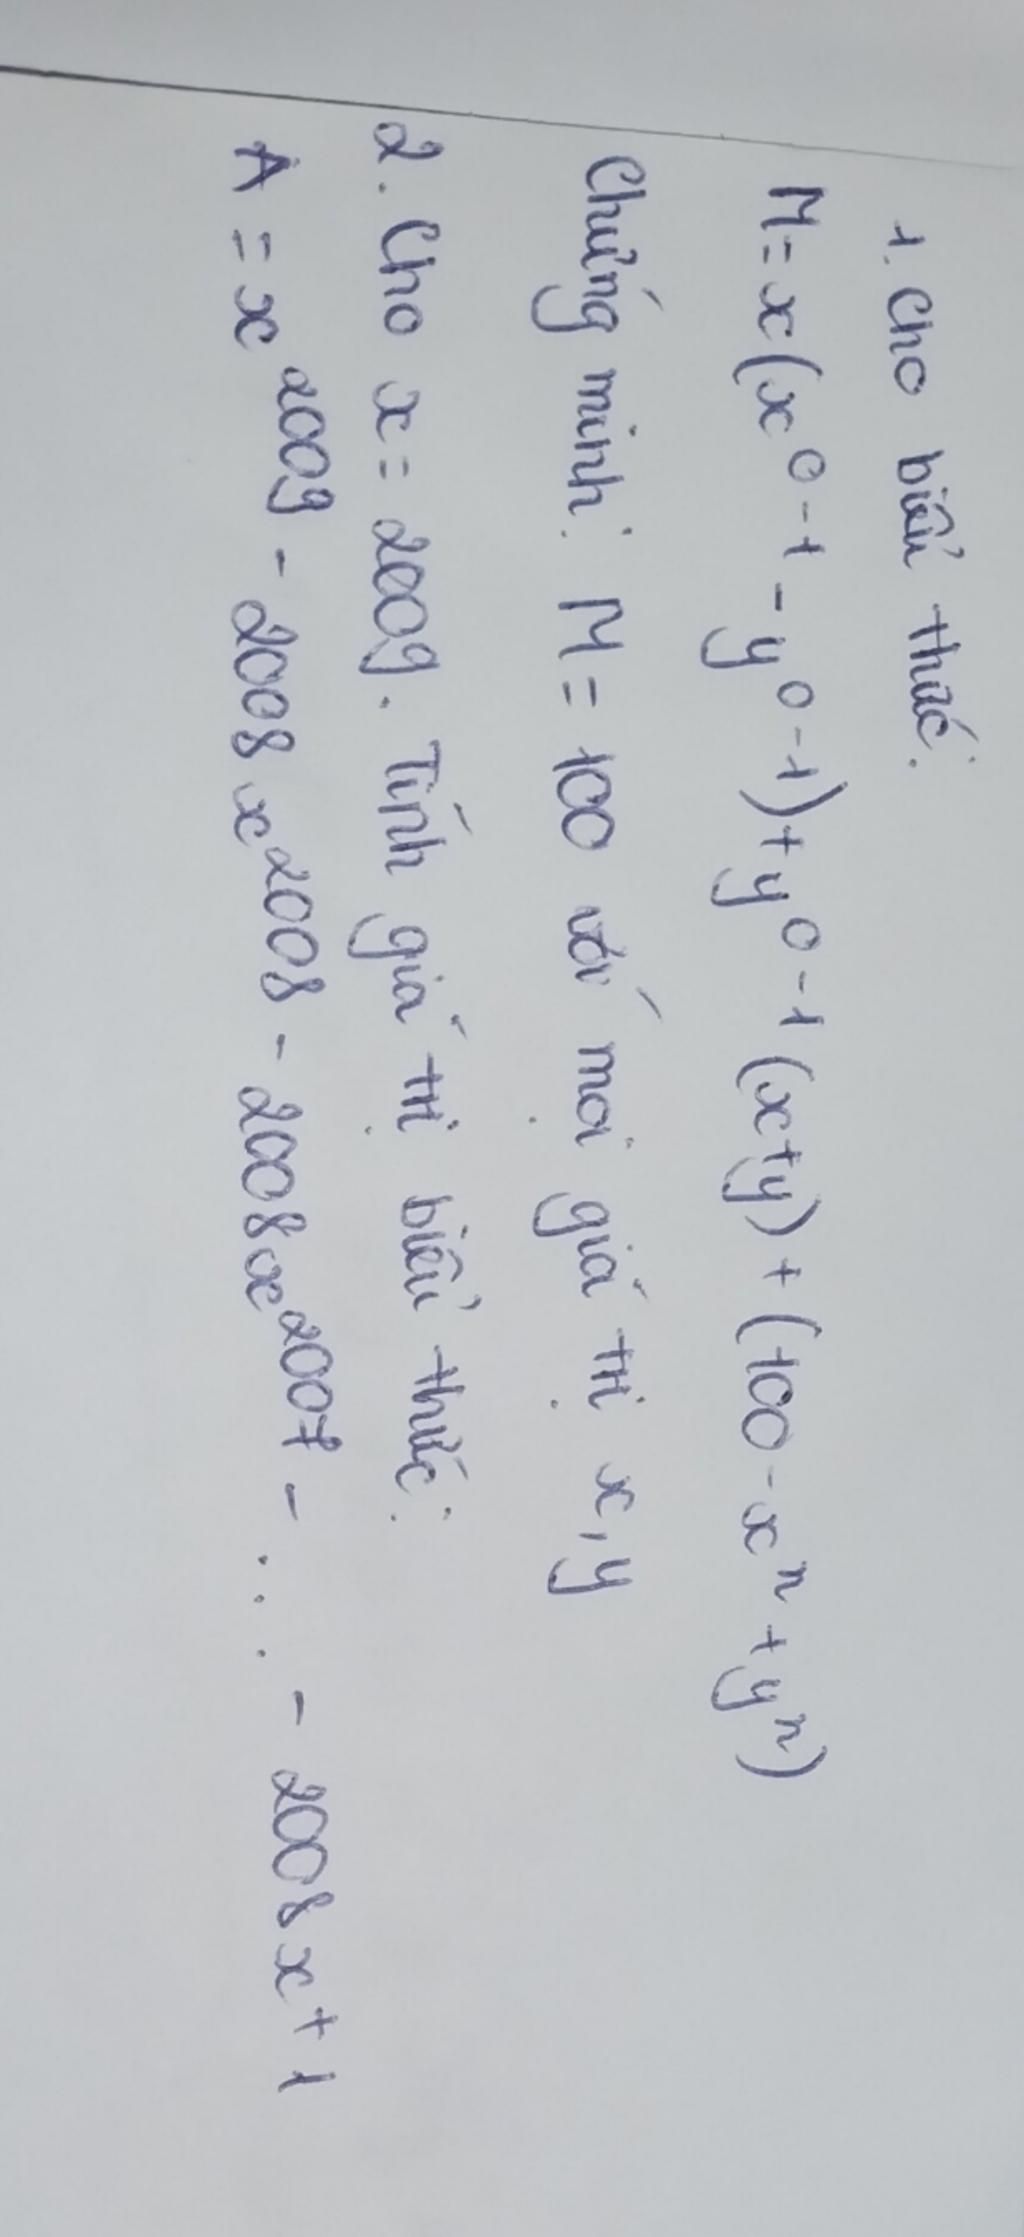 1. Cho biểu thức:
M = x(x⁰ - 1 - y⁰ - 1) + y⁰ - 1 (x+y) + (100 - xⁿ + yⁿ)
Chứng minh: M = 100 với mọi giá trị x, y
2. Cho x = 2009. Tính giá trị biểu thức:
A = x²⁰⁰⁹ - 2008x²⁰⁰⁸ - 2008x²⁰⁰⁷ - ... - 2008x + 1